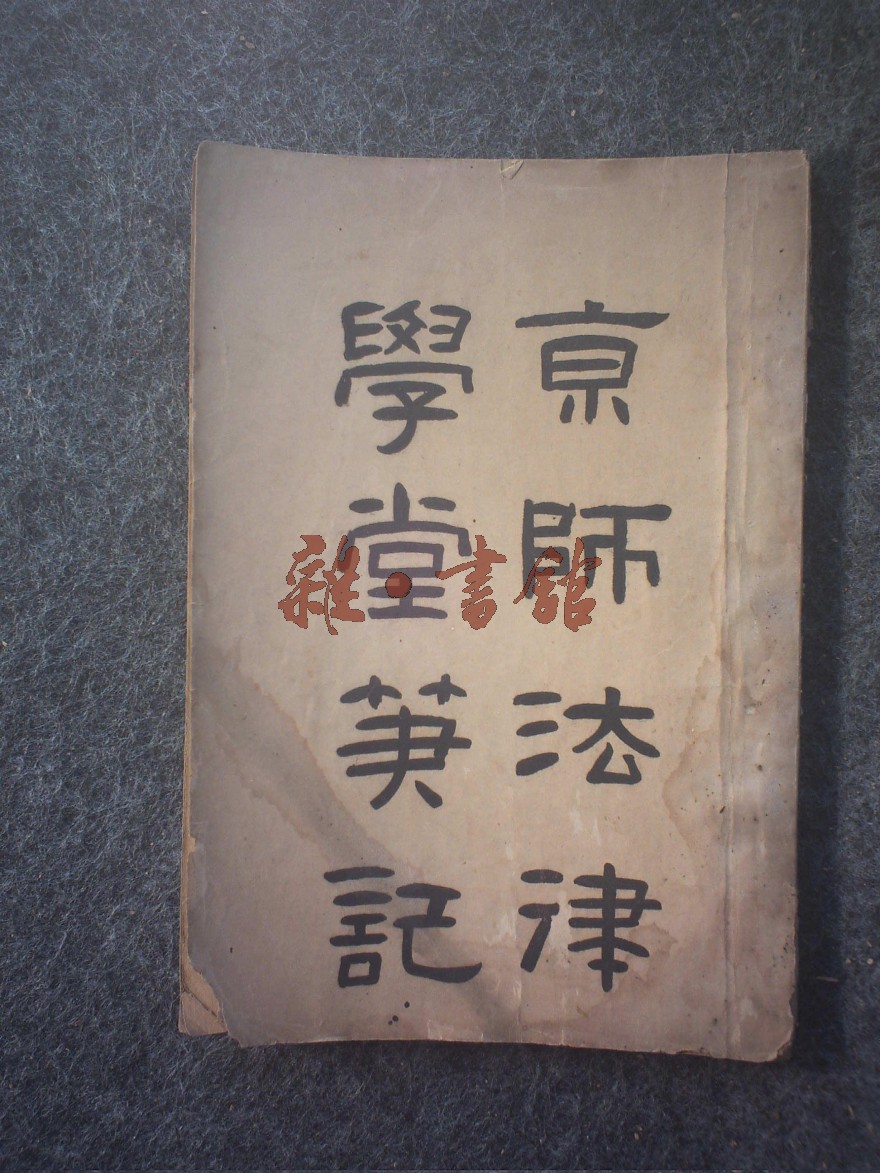 亰師法律
學堂筆記
雜·書館